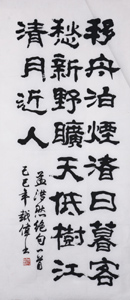 移舟泊煙渚日暮客
愁新野曠天低樹江
清月近人
孟浩然絕句一首
己巳年